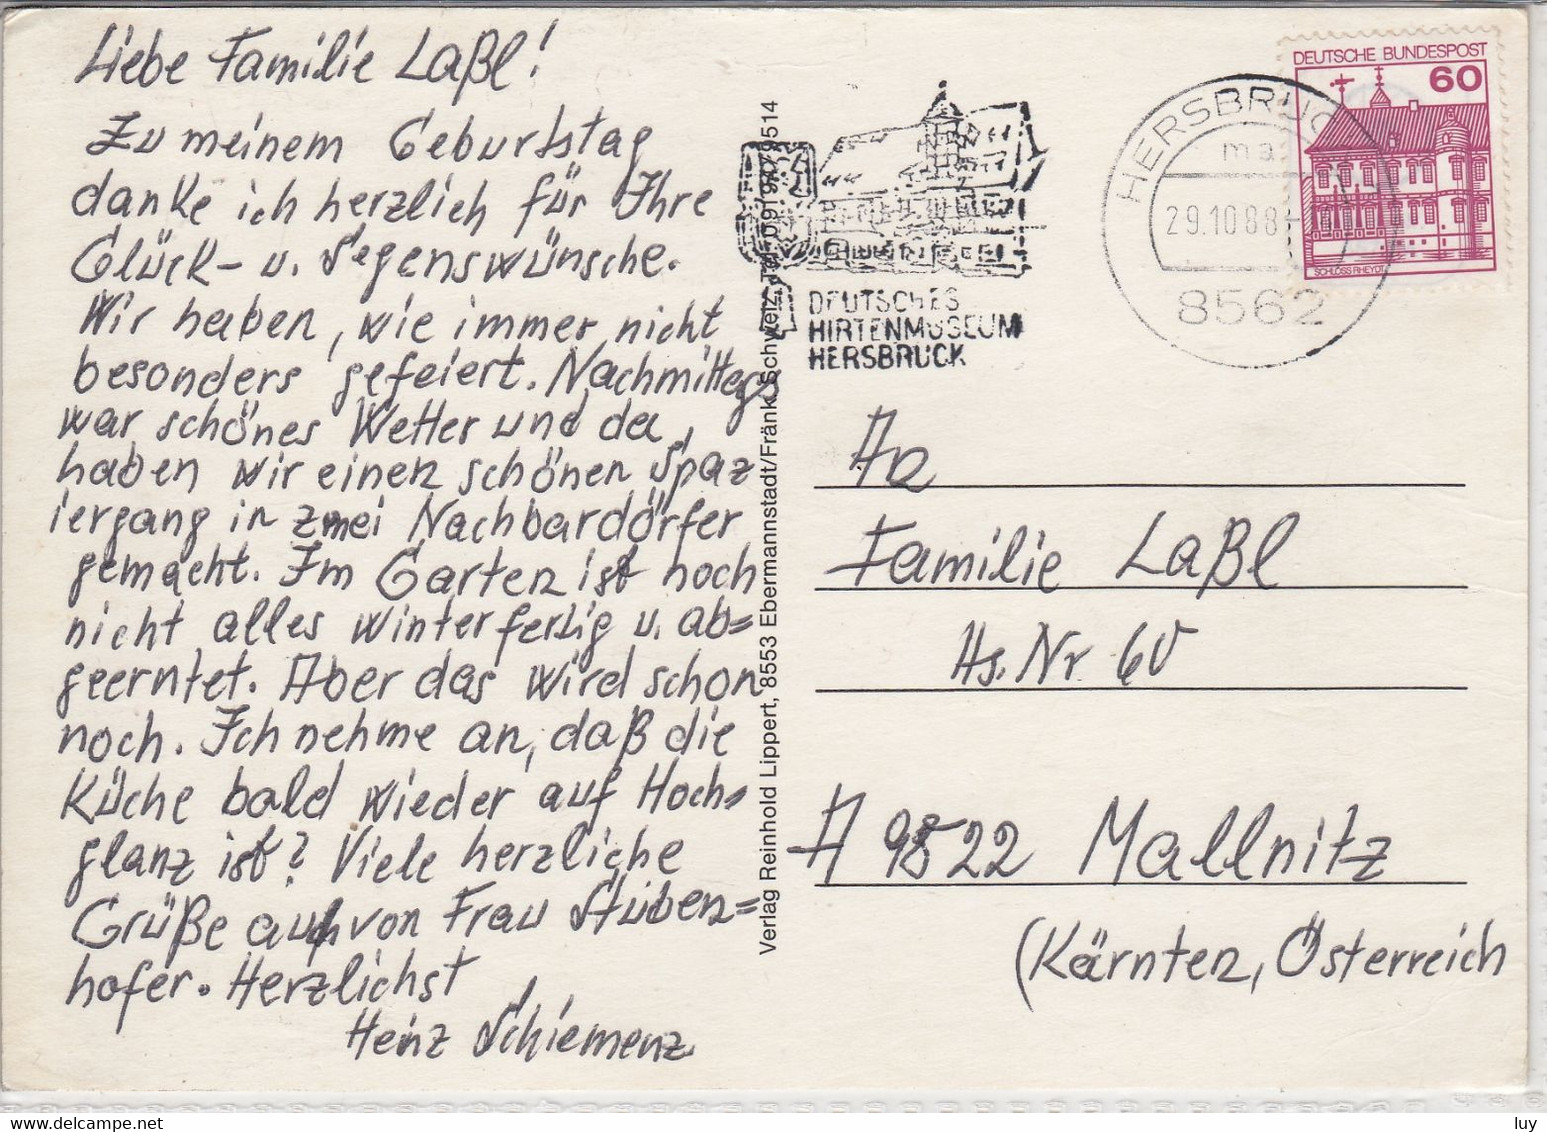 Liebe Familie Laßl!
Zu meinem Geburtstag
danke ich herzlich für Ihre
Glück- u. Segenswünsche.
Wir haben, wie immer nicht
besonders gefeiert. Nachmittags
war schönes Wetter und da
haben wir einen schönen Spaz
iergang in zwei Nachbardörfer
gemacht. Im Garten ist noch
nicht alles winterfertig u. ab=
geerntet. Aber das wird schon
noch. Ich nehme an, daß die
Küche bald wieder auf Hoch=
glanz ist? Viele herzliche
Grüße auch von Frau Stuben=
hofer. Herzlichst
Heinz Schiemenz
Verlag Reinhold Lippert, 8553 Ebermannstadt/Fränk. Schweiz, Tel.
DEUTSCHES
HIRTENMUSEUM
HERSBRUCK
HERSBRUCK
ma
29.10.88
8562
DEUTSCHE BUNDESPOST
60
SCHLOSS RHEYDT
An
Familie Laßl
Hs. Nr 60
A 9822 Mallnitz
(Kärnten, Österreich
www.delcampe.net
luy